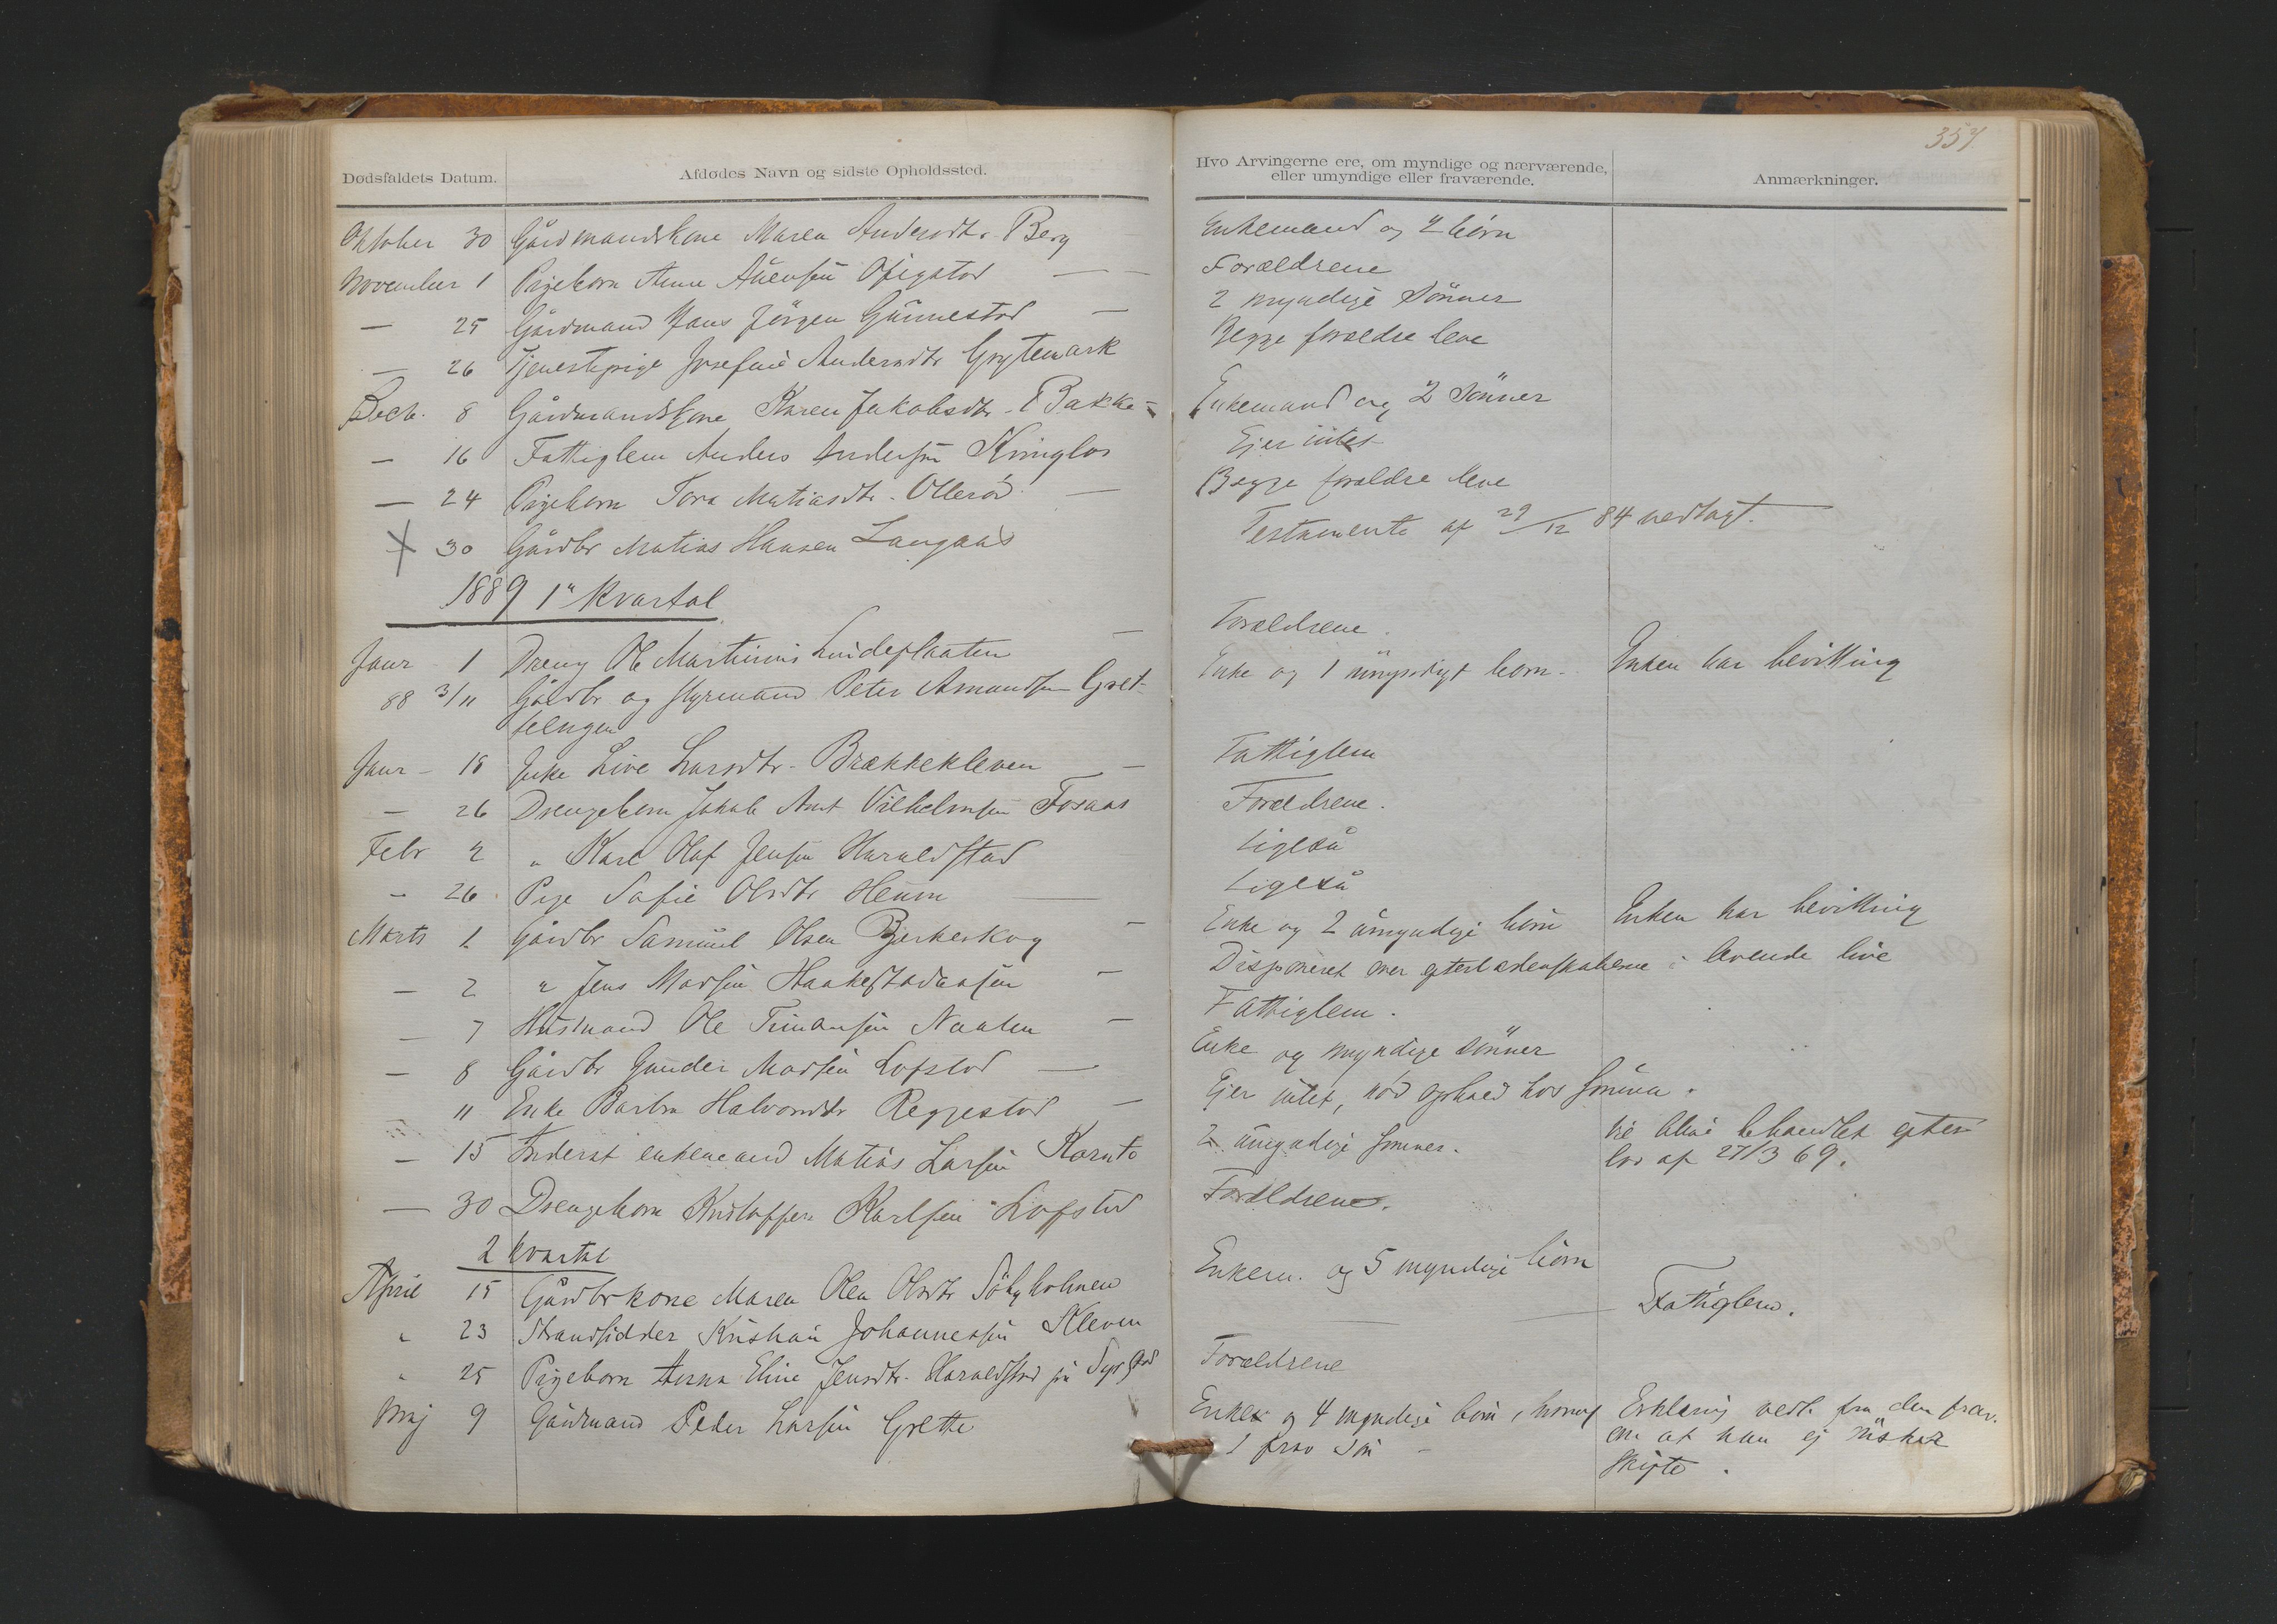 357
Dødsfaldets Datum. Afdødes Navn og sidste Opholdssted. Hvo Arvingerne ere, om myndige og nærværende, eller umyndige eller fraværende. Anmærkninger.
Oktober 30 Gårdmandskone Maren Andersdtr. Berg Enkemand og 2 börn
November 1 Pigebarn Anne Forældrene
— 25 Gårdmand Hans Jörgen Gunnestad — 2 myndige Sönner
— 26 Tjenestepige Josefine Andersdtr Grytemark Begge forældre leve
Decb. 8 Gårdmandskone Karen Jakobsdtr. Bakke – Enkemand og 2 Sönner
— 16 Fattiglem Anders Andersen Ejer intet
— 24 Pigebarn Tora Matiasdtr. Olleröd — Begge forældre leve
30 Gårdbr Matias Hansen Langaas Testamente af 29/12 84 vedlagt.
1889 1" Kvartal
Janr 1 Dreng Ole Martinius Lindeplaaten — Forældrene.
88 3/11 Gårdbr og styrmand Peter Amundsen Gret- Enke og 1 umyndigt barn. Enken har bevilling
telugen
Janr – 18 Enke Live Larsdtr. Brækkekleven — Fattiglem
— 26 Drengebarn Jakob Amt Vilhelmsen Fosaas Forældrene.
Febr 2 " Karl Olaf Jensen Haraldstad Ligeså
– 26 Pige Sofie Olsdtr Heum — Ligeså
Marts 1 Gårdbr Samuel Olsen Bjerkeskog – Enke og 2 umyndige börn Enken har bevilling
— 2 " Jens Madsen Haakestadaasen — Disponeret over efterladenskaberne i levende live
— 7 Husmand Ole Timansen Naalen — Fattiglem.
— 8 Gårdbr Gunder Madsen Lofstad — Enke og myndige sönner
11 Enke Barbra Halvorsdtr Reggestad — Ejer intet, nöd ophold hos
— 15 Inderst enkemand Matias Larsen Kornto 2 umyndige sönner. Vil blive behandlet efter
lov af 27/3 69.
— 30 Drengebarn Kristoffer Karlsen Lofstad Forældrene.
2 Kvartal
April 15 Gårdbrkone Maren Olea Olsdtr Söbyholmen Enkem. og 5 myndige börn
" 23 Strandsidder Kristian Johannessen Kleven — Fattiglem.
" 25 Pigebarn Anna Eline Jensdtr. Haraldstad Forældrene
Maj 9 Gårdmand Peder Larsen Grette Enke og 4 myndige börn, hvoraf Erklæring vedl. fra den frav.
1 frav sön – om at han ej önsker
skifte.